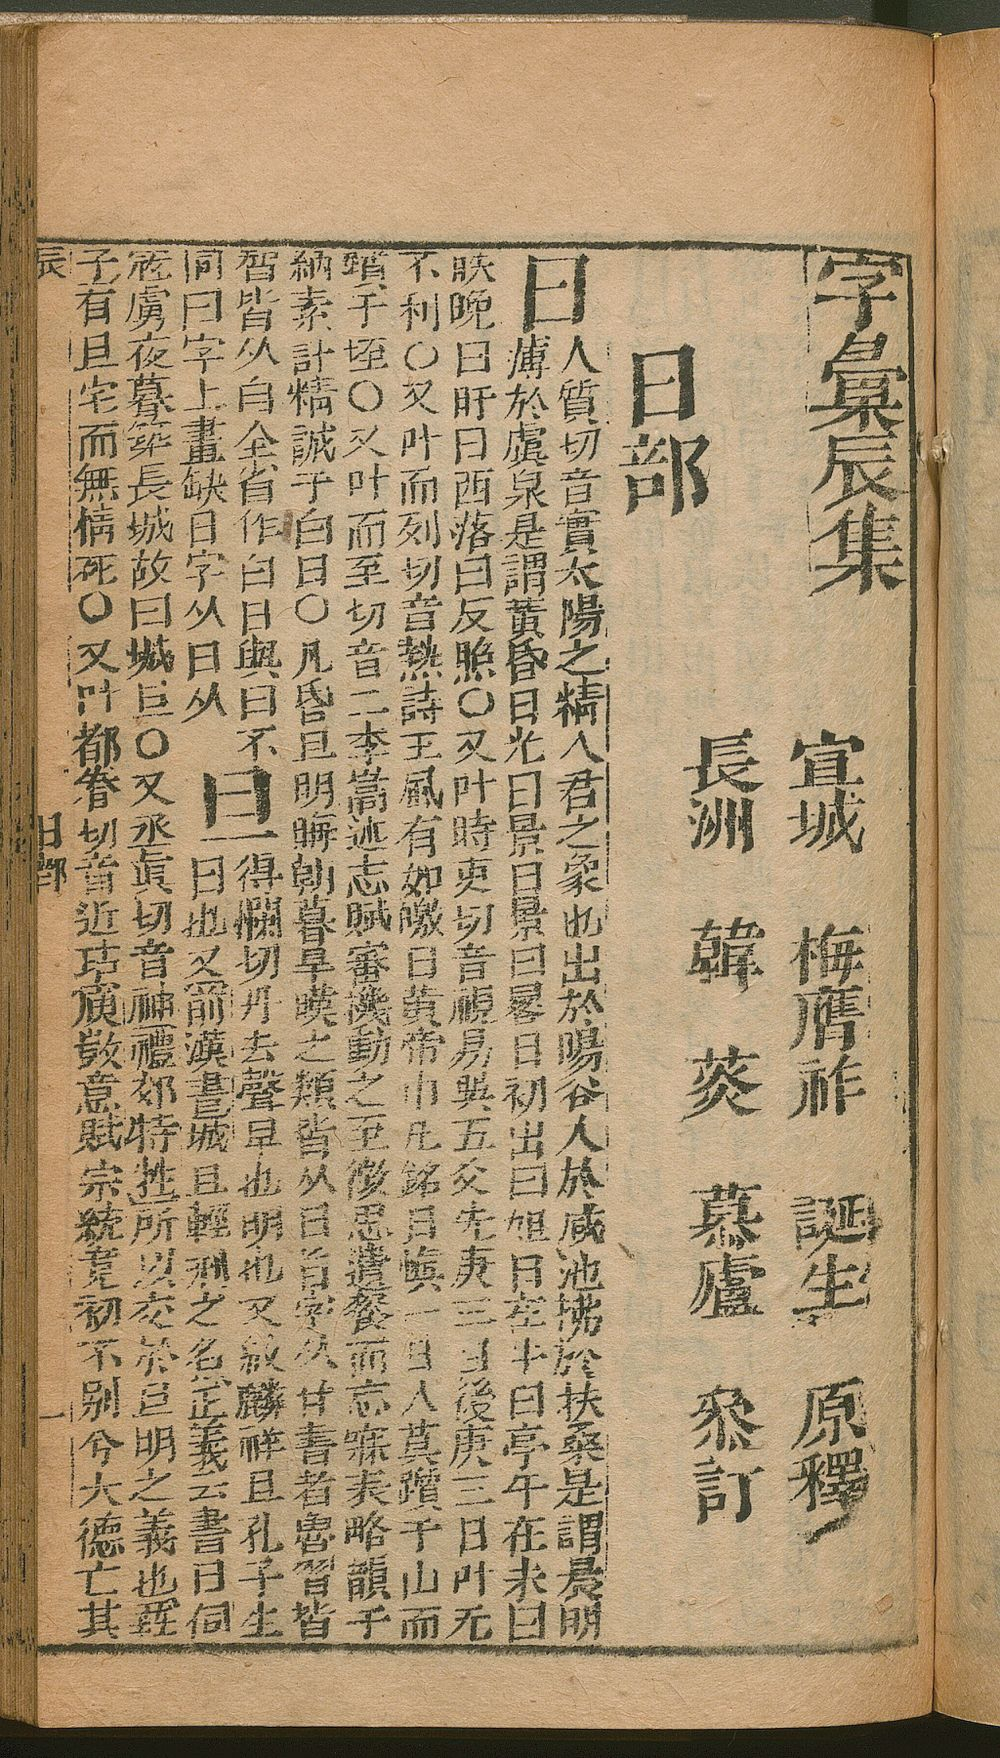 字彙辰集
宣城　梅膺祚　誕生　原釋
長洲　韓菼　慕廬　叅訂
日部
日 人質切音實太陽之精人君之象也出於暘谷入於咸池拂於扶桑是謂晨明
薄於虞泉是謂黃昏日光曰景日景曰晷日初出曰旭日在午曰亭午在未曰
昳晚曰旰日西落曰反照○又叶時吏切音視易巽五爻先庚三日後庚三日叶无
不利○又叶而列切音熱詩王風有如皦日黃帝巾几銘日愼一日人莫躓于山而
躓于垤○又叶而至切音二李嵩述志賦審機動之至微思遺餐而忘寐夷略韻于
納素計精誠于白日○凡昏旦明晦朝暮旱暵之類皆从日旨字从甘書者魯習皆
智皆从白全省作白日與曰不
同曰字上畫缺日字从日从
旦 得爛切丹去聲早也明也又紱麟祥旦孔子生
一日也又前漢書城旦輕刑之名正義云書日伺
寇虜夜暮築長城故曰城旦○又丞眞切音神禮郊特牲所以交於旦明之義也莊
子有旦宅而無情死○又叶都眷切音近班固賦宗統竟初不別兮大德亡其
辰　日部　一